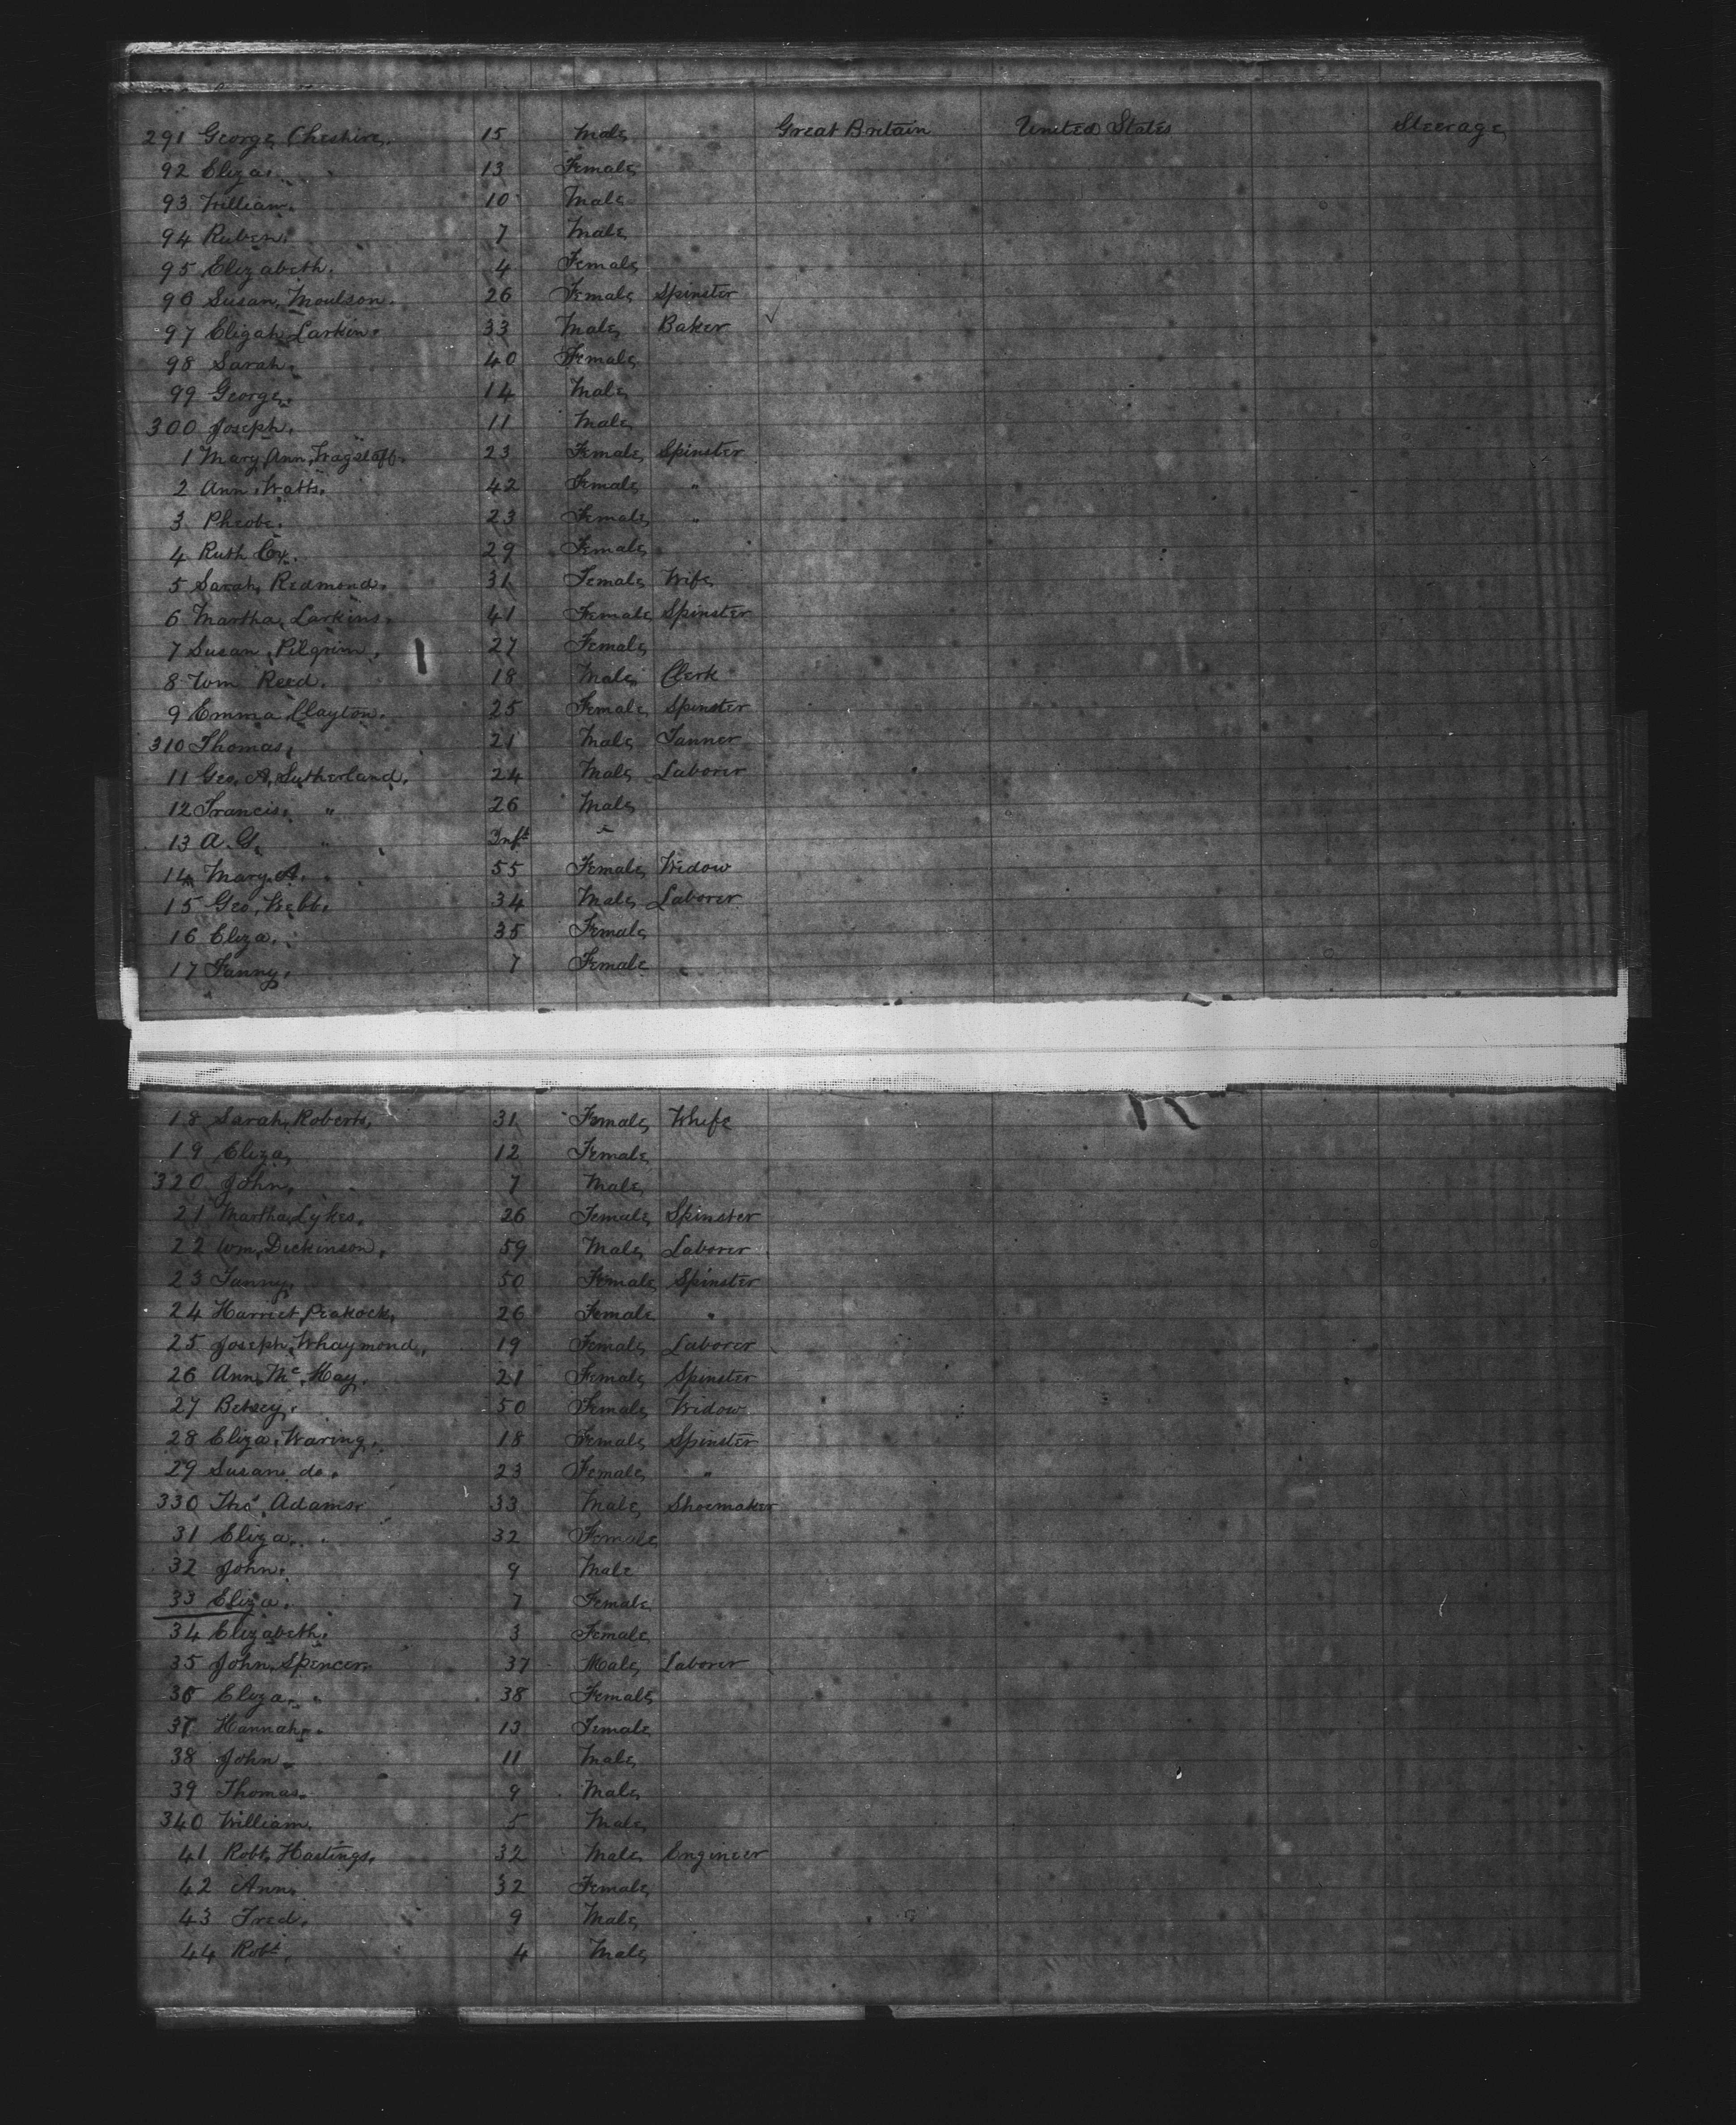 291 George Cheshire. 15 Male Great Britain United States Steerage
92 Eliza. 13 Female
93 William. 10 Male
94 Ruben. 7 Male
95 Elizabeth. 4 Female
96 Susan Moulson. 26 Female Spinster
97 Eligah Larkin. 33 Male Baker ✓
98 Sarah. 40 Female
99 George. 14 Male
300 Joseph. 11 Male
1 Mary Ann Wagstaff. 23 Female Spinster
2 Ann Watts. 42 Female "
3 Pheobe. 23 Female "
4 Ruth Cox. 29 Female
5 Sarah Redmond. 31 Female Wife
6 Martha Larkins. 41 Female Spinster
7 Susan Pilgrim. 27 Female
8 Wm Reed. 18 Male Clerk
9 Emma Clayton. 25 Female Spinster
310 Thomas. 21 Male Tanner
11 Geo. A. Sutherland. 24 Male Laborer
12 Francis. " 26 Male
13 A. G. " Inft
14 Mary A. 55 Female Widow
15 Geo. Webb. 34 Male Laborer
16 Eliza. 35 Female
17 Fanny. 7 Female
18 Sarah Roberts. 31 Female Whife
19 Eliza. 12 Female
320 John. 7 Male
21 Martha Lykes. 26 Female Spinster
22 Wm. Dickinson. 59 Male Laborer
23 Fanny. 50 Female Spinster
24 Harriet Peakock. 26 Female "
25 Joseph Whaymond. 19 Female Laborer
26 Ann Mc. Hay. 21 Female Spinster
27 Betsey. 50 Female Widow
28 Eliza Waring. 18 Female Spinster
29 Susan do. 23 Female "
330 Thos Adams. 33 Male Shoemaker
31 Eliza. 32 Female
32 John. 9 Male
33 Eliza. 7 Female
34 Elizabeth. 3 Female
35 John Spencer. 37 Male Laborer
36 Eliza. 38 Female
37 Hannah. 13 Female
38 John. 11 Male
39 Thomas. 9 Male
340 William. 5 Male
41 Robt. Hastings. 32 Male Engineer
42 Ann. 32 Female
43 Fred. 9 Male
44 Robt. 4 Male